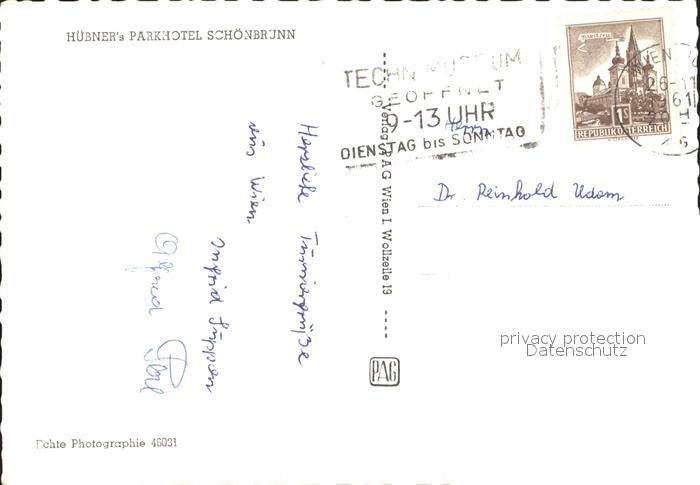 HÜBNER's PARKHOTEL SCHÖNBRUNN
TECHN. MUSEUM
GEÖFFNET
9-13 UHR
DIENSTAG bis SONNTAG
mariazell
1S
REPUBLIK ÖSTERREICH
WIEN
26-11
61
Herrn
Dr. Reinhold Udem
Herzliche Turniergrüße
aus Wien
Ingrid
Alfred
Verlag PAG Wien I. Wollzeile 19
PAG
privacy protection
Datenschutz
Echte Photographie 46031